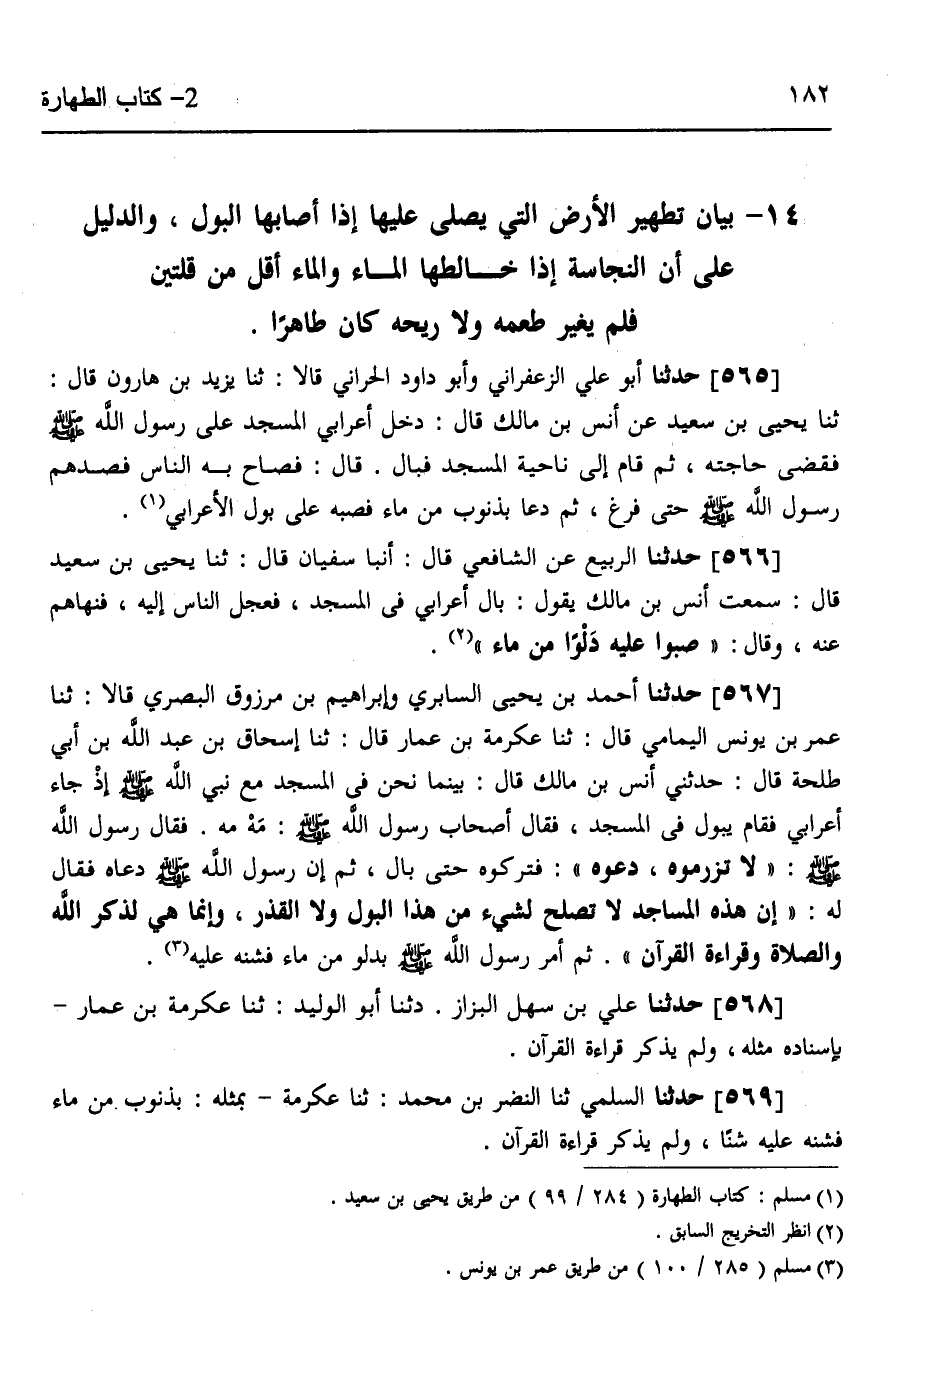 ١٨٢
2- كتاب الطهارة
١٤- بيان تطهير الأرض التي يصلى عليها إذا أصابها البول ، والدليل
على أن النجاسة إذا خـــالطها المـــاء والماء أقل من قلتين
فلم يغير طعمه ولا ريحه كان طاهرًا .
[٥٦٥] حدثنا أبو علي الزعفراني وأبو داود الحراني قالا : ثنا يزيد بن هارون قال :
ثنا يحيى بن سعيد عن أنس بن مالك قال : دخل أعرابي المسجد على رسول اللَّه ﷺ
فقضى حاجته ، ثم قام إلى ناحية المسجد فبال . قال : فصاح بـه الناس فصـدهم
رسـول اللَّه ﷺ حتى فرغ ، ثم دعا بذنوب من ماء فصبه على بول الأعرابي(١) .
[٥٦٦] حدثنا الربيع عن الشافعي قال : أنبا سفيان قال : ثنا يحيى بن سعيد
قال : سمعت أنس بن مالك يقول : بال أعرابي فى المسجد ، فعجل الناس إليه ، فنهاهم
عنه ، وقال : « صبوا عليه دَلْوًا من ماء »(٢) .
[٥٦٧] حدثنا أحمد بن يحيى السابري وإبراهيم بن مرزوق البصري قالا : ثنا
عمر بن يونس اليمامي قال : ثنا عكرمة بن عمار قال : ثنا إسحاق بن عبد اللَّه بن أبي
طلحة قال : حدثني أنس بن مالك قال : بينما نحن فى المسجد مع نبي اللَّه ﷺ إذْ جاء
أعرابي فقام يبول فى المسجد ، فقال أصحاب رسول اللَّه ﷺ : مَهْ مه . فقال رسول اللَّه
ﷺ : « لا تزرموه ، دعوه » : فتركوه حتى بال ، ثم إن رسول اللَّه ﷺ دعاه فقال
له : « إن هذه المساجد لا تصلح لشيء من هذا البول ولا القذر ، وإنما هي لذكر اللَّه
والصلاة وقراءة القرآن » . ثم أمر رسول اللَّه ﷺ بدلو من ماء فشنه عليه(٣) .
[٥٦٨] حدثنا علي بن سهل البزاز . دثنا أبو الوليد : ثنا عكرمة بن عمار –
بإسناده مثله ، ولم يذكر قراءة القرآن .
[٥٦٩] حدثنا السلمي ثنا النضر بن محمد : ثنا عكرمة – بمثله : بذنوب من ماء
فشنه عليه شنًا ، ولم يذكر قراءة القرآن .
(١) مسلم : كتاب الطهارة ( ٢٨٤ / ٩٩ ) من طريق يحيى بن سعيد .
(٢) انظر التخريج السابق .
(٣) مسلم ( ٢٨٥ / ١٠٠ ) من طريق عمر بن يونس .